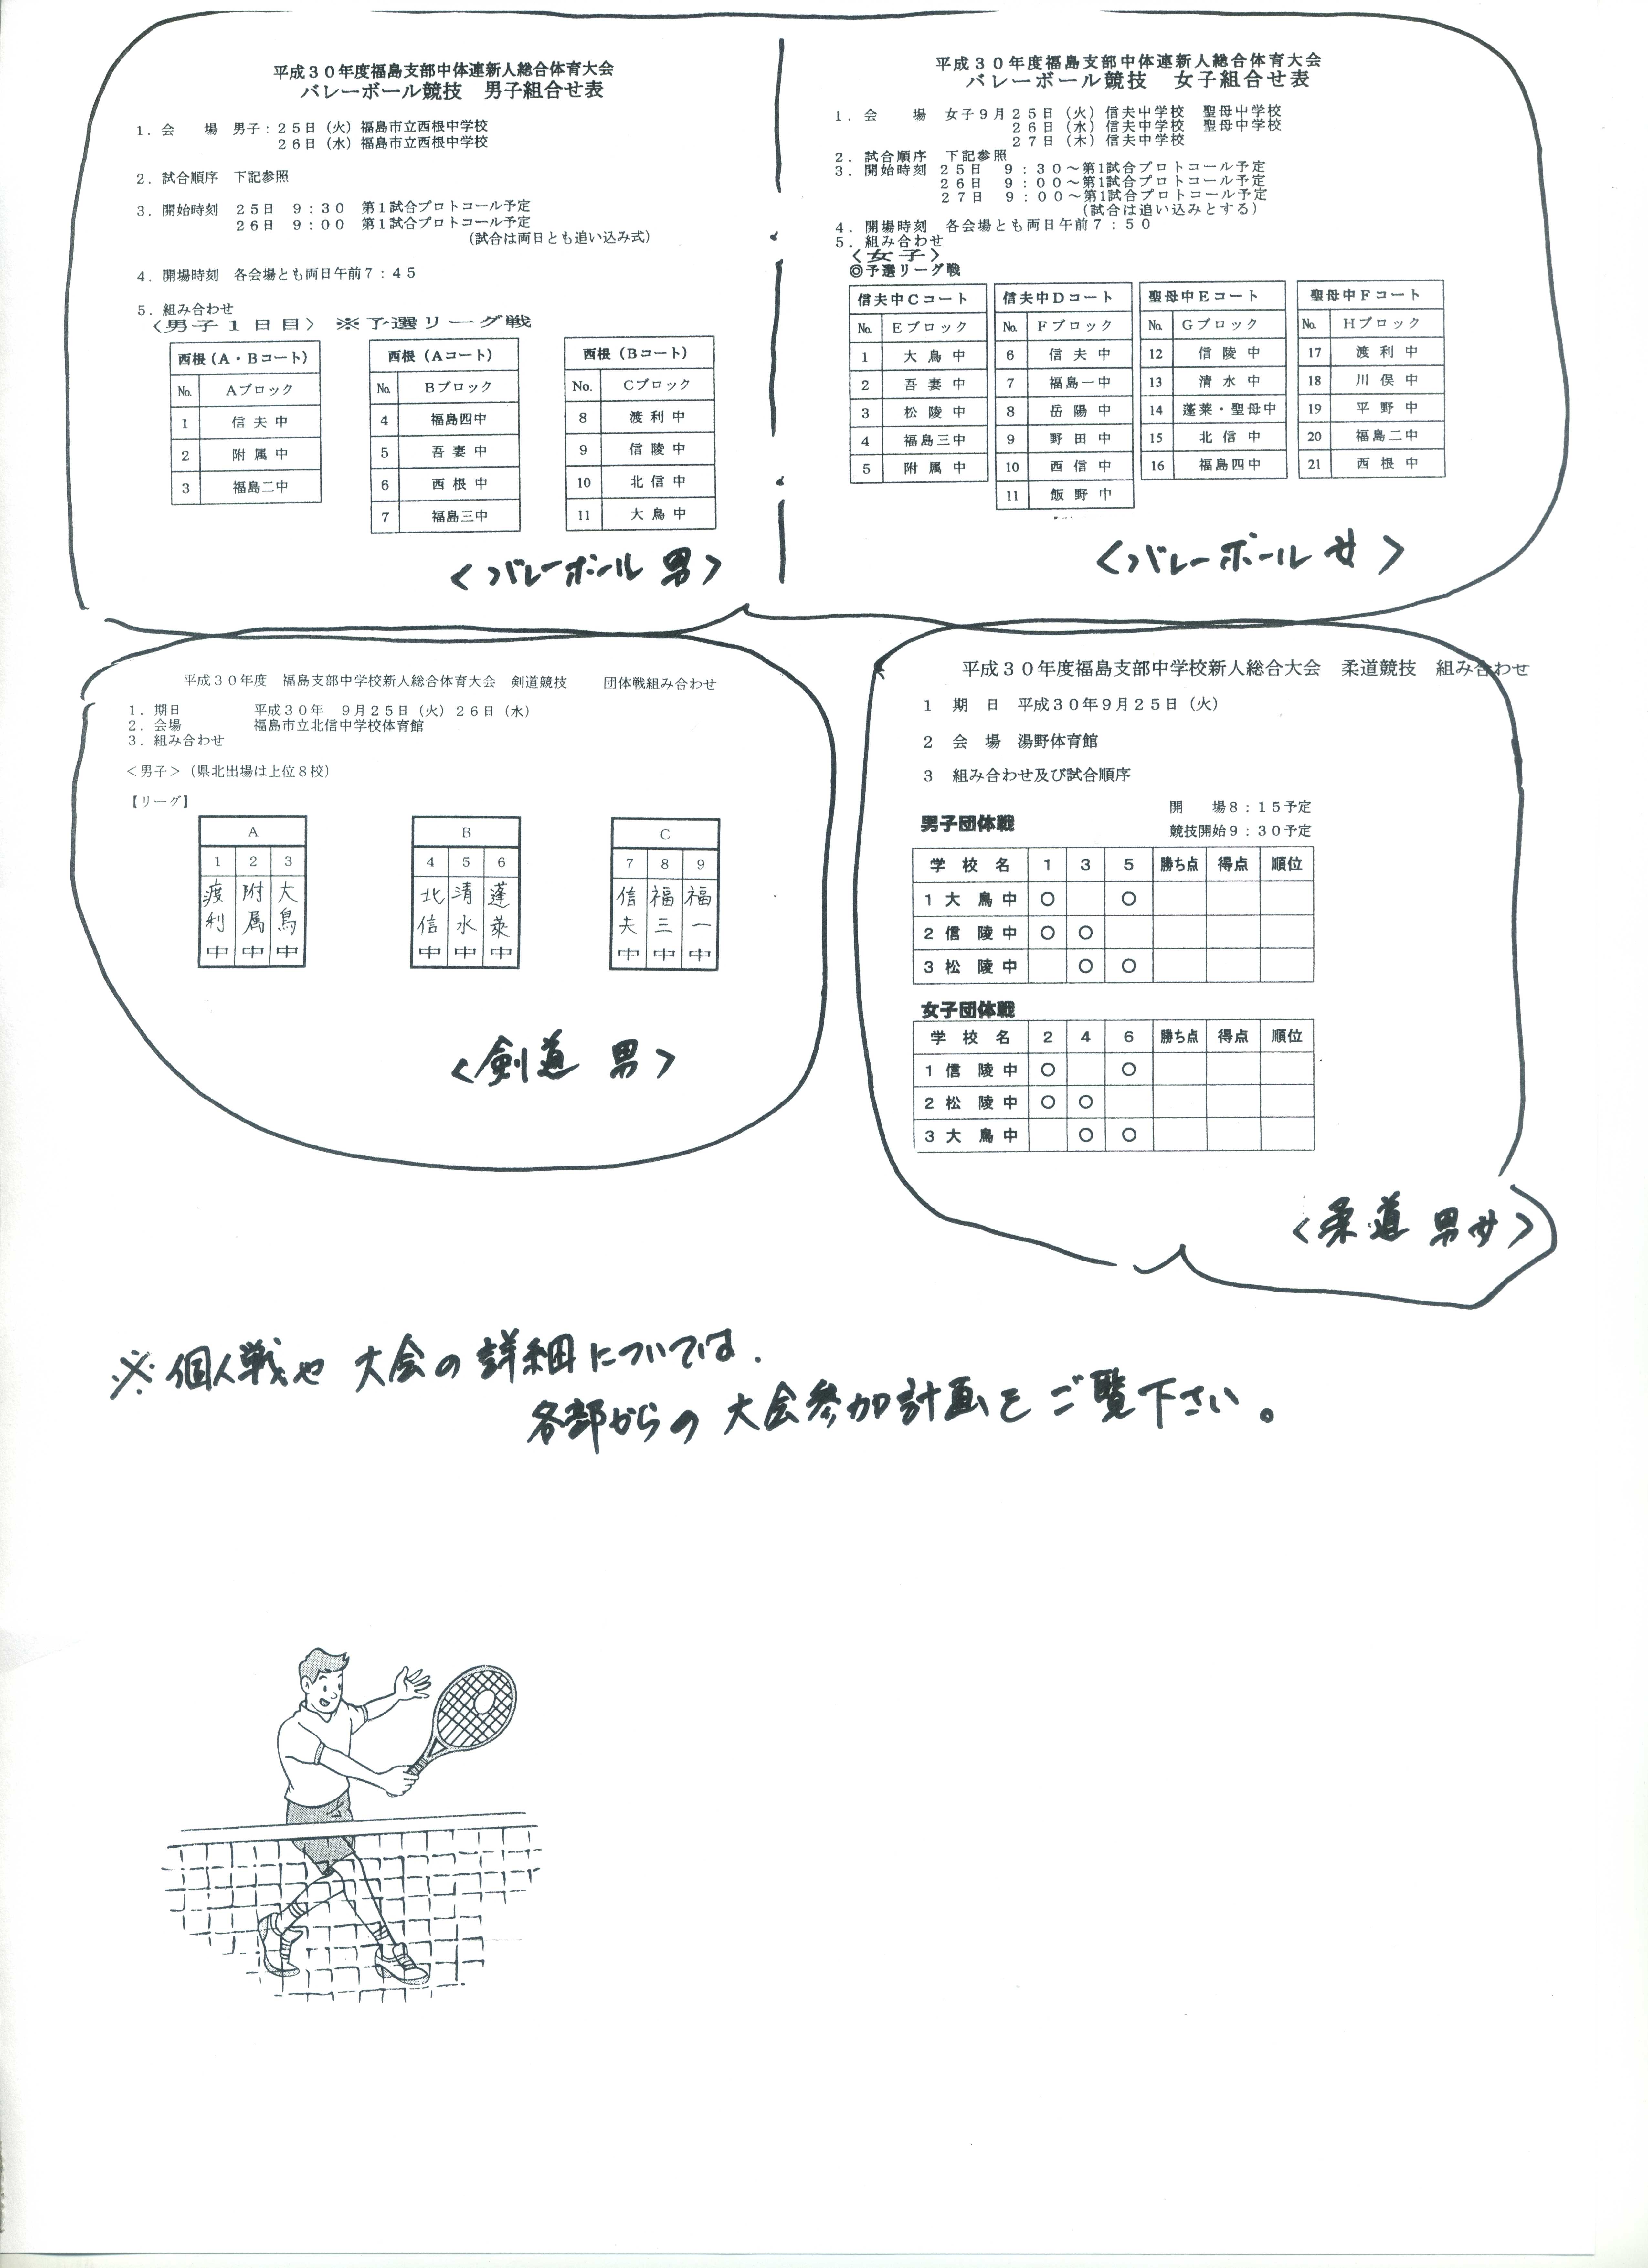 平成３０年度福島支部中体連新人総合体育大会
バレーボール競技　男子組合せ表
１．会　　場　男子：２５日（火）福島市立西根中学校
２６日（水）福島市立西根中学校
２．試合順序　下記参照
３．開始時刻　２５日　９：３０　第１試合プロトコール予定
２６日　９：００　第１試合プロトコール予定
（試合は両日とも追い込み式）
４．開場時刻　各会場とも両日午前７：４５
５．組み合わせ
〈男子１日目〉　※予選リーグ戦
西根（A・Bコート）
No.　Aブロック
1　信夫中
2　附属中
3　福島二中
西根（Aコート）
No.　Bブロック
4　福島四中
5　吾妻中
6　西根中
7　福島三中
西根（Bコート）
No.　Cブロック
8　渡利中
9　信陵中
10　北信中
11　大鳥中
＜バレーボール 男＞
平成３０年度福島支部中体連新人総合体育大会
バレーボール競技　女子組合せ表
１．会　　場　女子９月２５日（火）信夫中学校　聖母中学校
２６日（水）信夫中学校　聖母中学校
２７日（木）信夫中学校
２．試合順序　下記参照
３．開始時刻　２５日　９：３０～第1試合プロトコール予定
２６日　９：００～第1試合プロトコール予定
２７日　９：００～第1試合プロトコール予定
（試合は追い込みとする）
４．開場時刻　各会場とも両日午前７：５０
５．組み合わせ
〈女子〉
◎予選リーグ戦
信夫中Cコート
No.　Eブロック
1　大鳥中
2　吾妻中
3　松陵中
4　福島三中
5　附属中
信夫中Dコート
No.　Fブロック
6　信夫中
7　福島一中
8　岳陽中
9　野田中
10　西信中
11　飯野中
聖母中Eコート
No.　Gブロック
12　信陵中
13　清水中
14　蓬莱・聖母中
15　北信中
16　福島四中
聖母中Fコート
No.　Hブロック
17　渡利中
18　川俣中
19　平野中
20　福島二中
21　西根中
＜バレーボール 女＞
平成３０年度　福島支部中学校新人総合体育大会　剣道競技　　団体戦組み合わせ
１．期日　　平成３０年　９月２５日（火）２６日（水）
２．会場　　福島市立北信中学校体育館
３．組み合わせ
＜男子＞（県北出場は上位８校）
【リーグ】
A
1　2　3
渡利中　附属中　大鳥中
B
4　5　6
北信中　清水中　蓬莱中
C
7　8　9
信夫中　福三中　福一中
＜剣道 男＞
平成３０年度福島支部中学校新人総合大会　柔道競技　組み合わせ
１　期　日　平成30年９月２５日（火）
２　会　場　湯野体育館
３　組み合わせ及び試合順序
開　　場８：１５予定
男子団体戦　競技開始９：３０予定
学校名　1　3　5　勝ち点　得点　順位
1 大鳥中　○　○
2 信陵中　○　○
3 松陵中　○　○
女子団体戦
学校名　2　4　6　勝ち点　得点　順位
1 信陵中　○　○
2 松陵中　○　○
3 大鳥中　○　○
＜柔道 男女＞
※個人戦や大会の詳細については.
各部からの大会参加計画をご覧下さい。